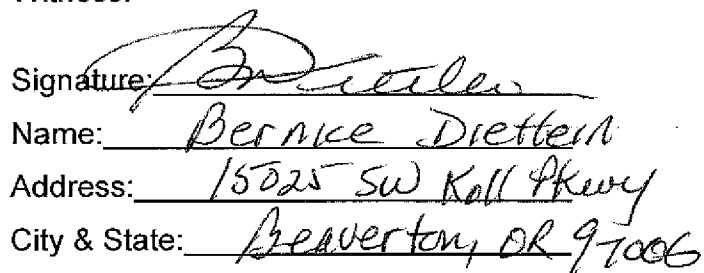 Signature:
Name: Bernice
Address: 15025 SW Koll Pkwy
City & State: Beaverton, OR 97006